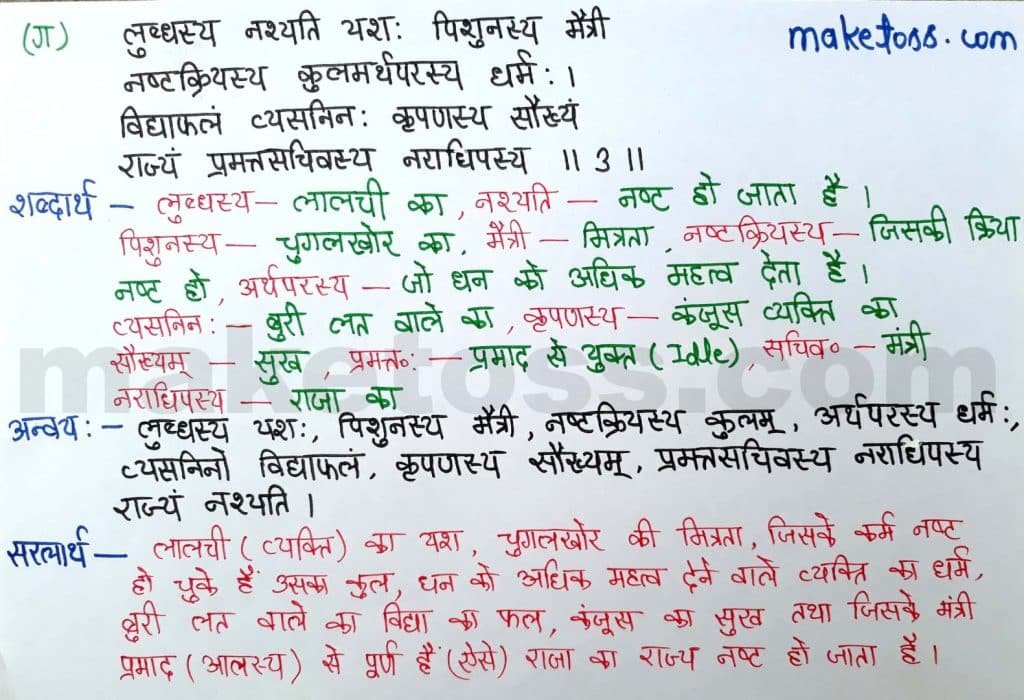 (ग) लुब्धस्य नश्यति यशः पिशुनस्य मैत्री
maketoss.com
नष्टक्रियस्य कुलमर्थपरस्य धर्मः ।
विद्याफलं व्यसनिनः कृपणस्य सौख्यं
राज्यं प्रमत्तसचिवस्य नराधिपस्य ॥ 3 ॥
शब्दार्थ – लुब्धस्य – लालची का, नश्यति – नष्ट हो जाता है ।
पिशुनस्य – चुगलखोर का, मैत्री – मित्रता, नष्टक्रियस्य – जिसकी क्रिया
नष्ट हो, अर्थपरस्य – जो धन को अधिक महत्व देता है ।
व्यसनिनः – बुरी लत वाले का, कृपणस्य – कंजूस व्यक्ति का
सौख्यम् – सुख, प्रमत्तः – प्रमाद से युक्त (Idle), सचिव॰ – मंत्री
नराधिपस्य – राजा का
अन्वयः – लुब्धस्य यशः, पिशुनस्य मैत्री, नष्टक्रियस्य कुलम्, अर्थपरस्य धर्मः,
व्यसनिनो विद्याफलं, कृपणस्य सौख्यम्, प्रमत्तसचिवस्य नराधिपस्य
राज्यं नश्यति ।
सरलार्थ – लालची (व्यक्ति) का यश, चुगलखोर की मित्रता, जिसके कर्म नष्ट
हो चुके हैं उसका कुल, धन को अधिक महत्व देने वाले व्यक्ति का धर्म,
बुरी लत वाले का विद्या का फल, कंजूस का सुख तथा जिसके मंत्री
प्रमाद (आलस्य) से पूर्ण हैं (ऐसे) राजा का राज्य नष्ट हो जाता है ।
maketoss.com